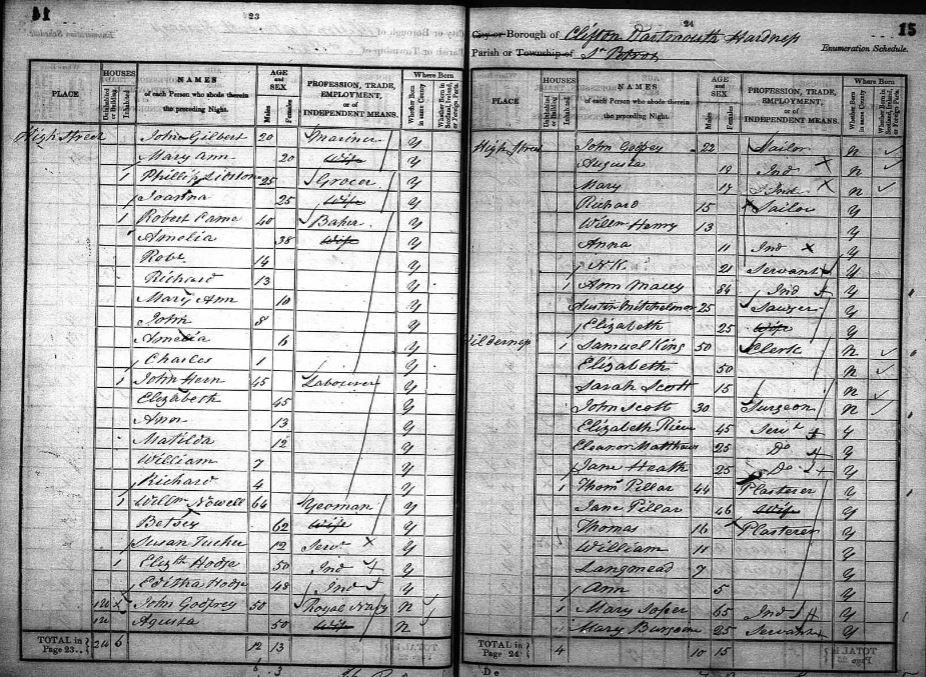 14
23
Enumeration Schedule.
PLACE
HOUSES
Uninhabited or Building
Inhabited
NAMES
of each Person who abode therein
the preceding Night.
AGE
and
SEX
Males
Females
PROFESSION, TRADE,
EMPLOYMENT,
or of
INDEPENDENT MEANS.
Where Born
Whether Born in same County
Whether Born in Scotland, Ireland, or Foreign Parts.
High Street John Gilbert 20 Mariner y
Mary Ann 20 Wife y
1 Phillip 25 Grocer y
Joanna 25 Wife y
1 Robert Came 40 Baker y
Amelia 38 Wife y
Robt 14 y
Richard 13 y
Mary Ann 10 y
John 8 y
Amelia 6 y
Charles 1 y
1 John Hern 45 Labourer y
Elizabeth 45 y
Ann 13 y
Matilda 12 y
William 7 y
Richard 4 y
1 Willm Nowell 64 Yeoman y
Betsey 62 Wife y
Susan Tucker 12 Servt y
1 Elizth Hodge 50 Ind y
Editha Hodge 48 Ind y
John Godfrey 50 Royal Navy n
Agusta 50 Wife n
TOTAL in Page 23 6 12 13
24
15
City or Borough of Clifton Dartmouth Hardness
Parish or Township of St Petrox
Enumeration Schedule.
PLACE
HOUSES
Uninhabited or Building
Inhabited
NAMES
of each Person who abode therein
the preceding Night.
AGE
and
SEX
Males
Females
PROFESSION, TRADE,
EMPLOYMENT,
or of
INDEPENDENT MEANS.
Where Born
Whether Born in same County
Whether Born in Scotland, Ireland, or Foreign Parts.
High Street John 22 Sailor n
Augusta 19 Ind n
Mary 17 Ind n
Richard 15 Sailor y
Willm Henry 13 y
Anna 11 Ind y
21 Servant y
1 Ann Macey 84 Ind y
25 Sawyer y
Elizabeth 25 Wife y
1 Samuel King 50 Clerk n
Elizabeth 50 n
Sarah Scott 15 n
John Scott 30 Surgeon n
Elizabeth 45 Servt y
Eleanor Matthews 25 Do y
Jane Heath 25 Do y
1 Thomas Pillar 44 Plasterer y
Jane Pillar 46 Wife y
Thomas 16 Plasterer y
William 11 y
Langmead 7 y
Ann 5 y
1 Mary Soper 65 Ind y
Mary 25 Servant y
TOTAL in Page 24 4 10 15